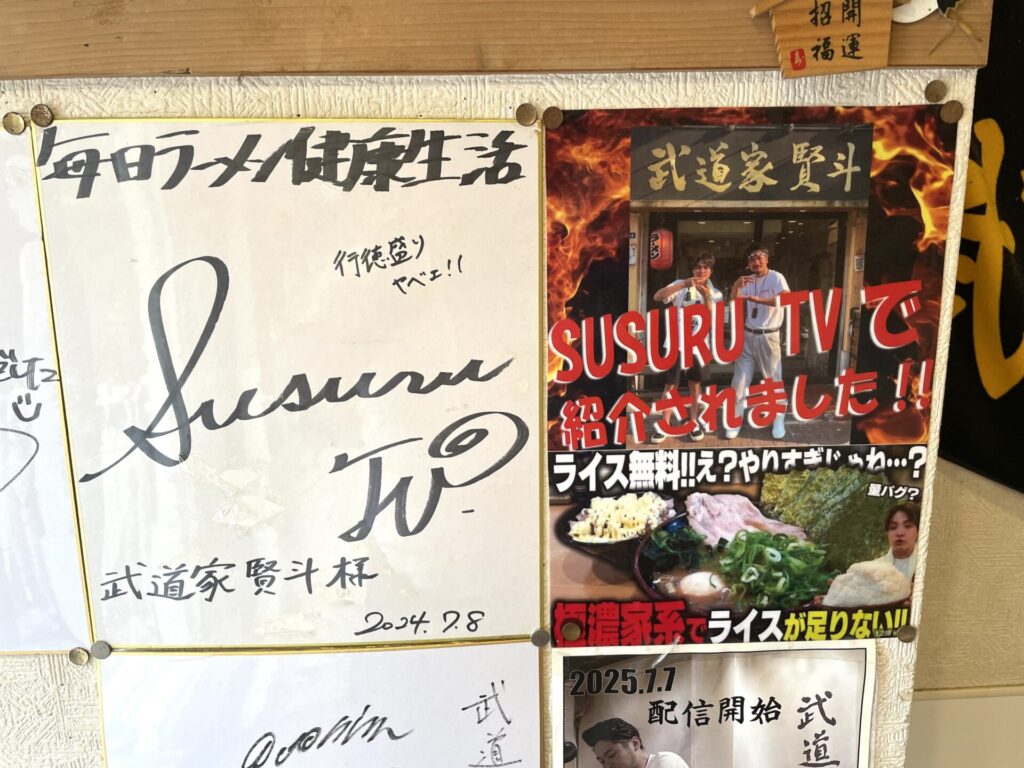 開運
招福
毎日ラーメン健康生活
行徳盛り
ヤベェ!!
Susuru
TV.
武道家 賢斗 様
2024.7.8
武道家 賢斗
ラーメン
SUSURU TVで
紹介されました!!
ライス無料!!え?やりすぎじゃね…?
量バグ?
極濃家系でライスが足りない!!
2025.7.7
配信開始
武道
武道